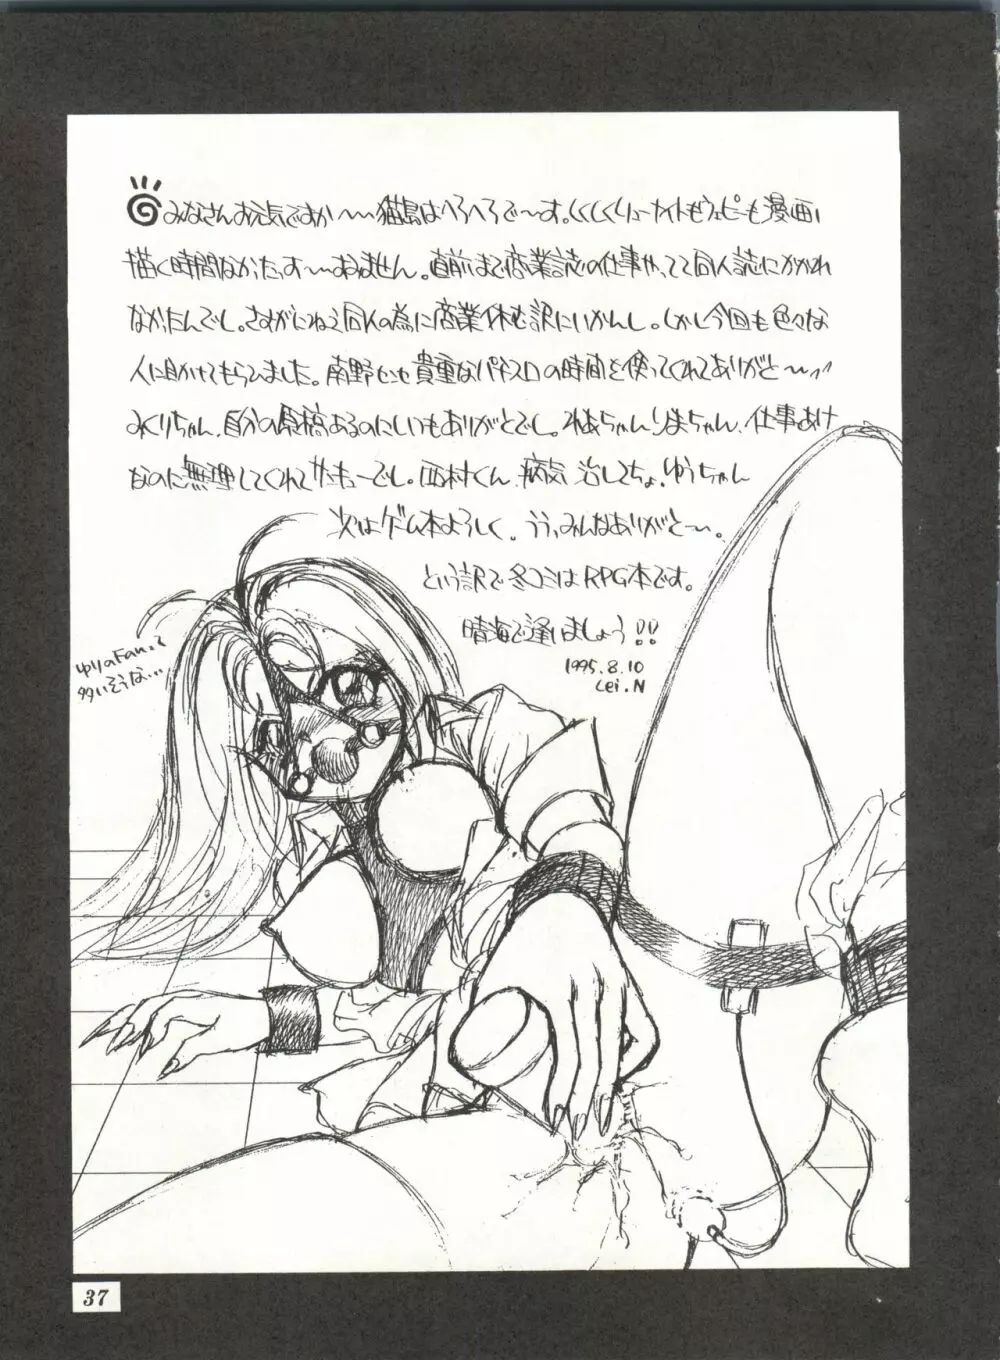 みなさんお元気ですか〜〜猫島はへろへろで〜す。しくしくリューナイトもウェピーも漫画
描く時間なかたっす〜おません。直前まで商業誌の仕事やってて同人誌にかかれ
なかったんでし。さすがにねえ同人の為に商業休む訳にいかんし。しかし今回も色々な
人に助けてもらいました。南野センセ貴重なパチスロの時間を使ってくれてありがと〜〜
みくりちゃん、自分の原稿あるのにいつもありがとでし。ねあちゃんりまちゃん、仕事あけ
なのに無理してくれてサンキューでし。西村くん、病気治してちょ。ゆうちゃん
次はゲーム本よろしく。うう、みんなありがと〜。
という訳で冬コミはRPG本です。
晴海で逢いましょう!!
1995.8.10
Lei.N
ゆりのFanって
多いそうな…
37